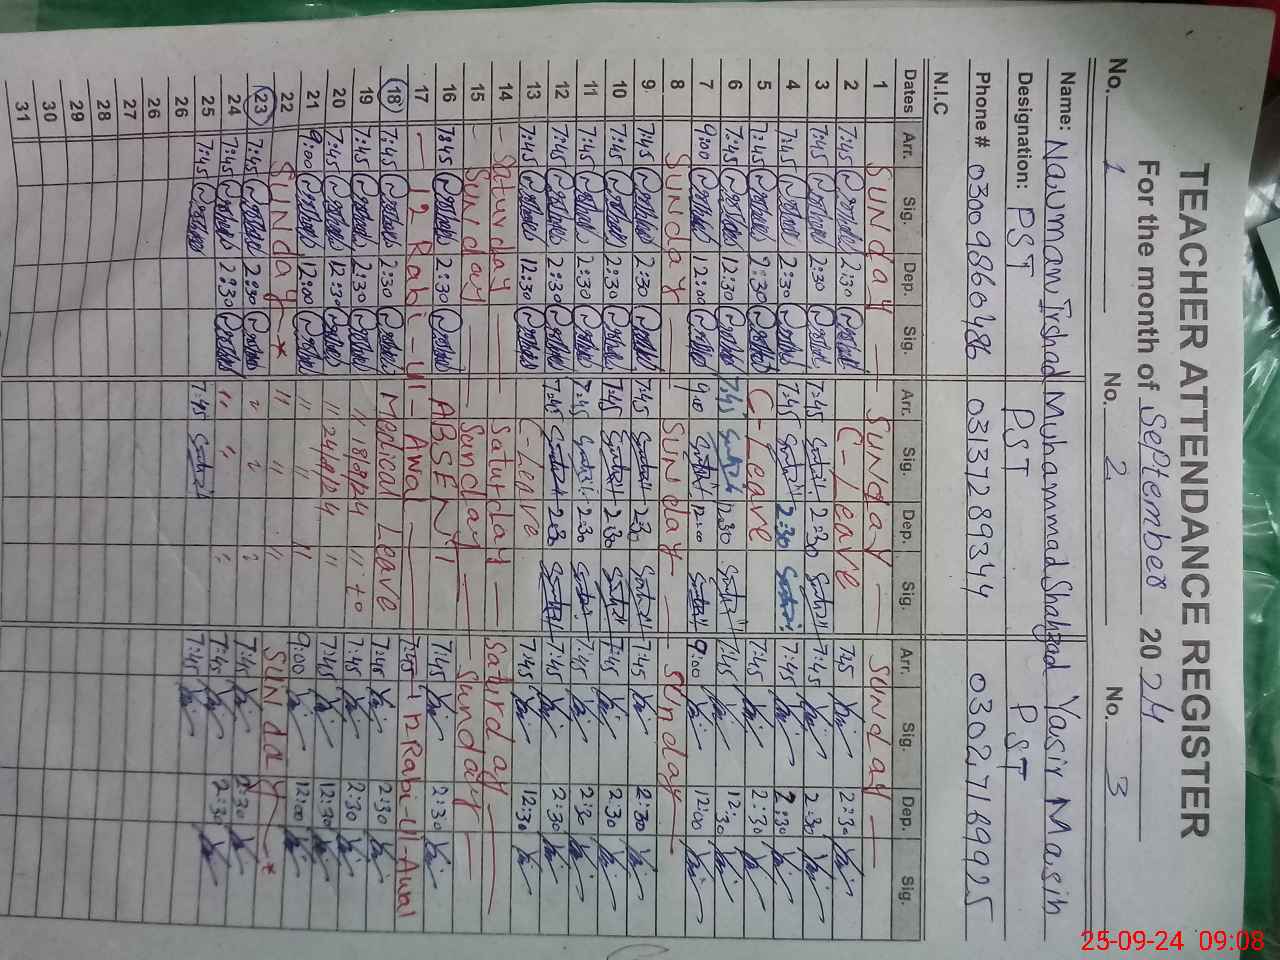 TEACHER ATTENDANCE REGISTER
For the month of September 2024
No. 1 No. 2 No. 3
Name: Nauman Irshad Muhammad Shahzad Yasir Masih
Designation: PST PST PST
Phone # 03009860486 03137289344 03027169925
N.I.C
Dates Arr. Sig. Dep. Sig. Arr. Sig. Dep. Sig. Arr. Sig. Dep. Sig.
1 SUNday SUNday SUNday
2 7:45 2:30 C-Leave 7:45 2:30
3 7:45 2:30 7:45 2:30 7:45 2:30
4 7:45 2:30 7:45 2:30 7:45 2:30
5 7:45 2:30 C-Leave 7:45 2:30
6 7:45 12:30 7:45 12:30 7:45 12:30
7 9:00 12:00 9:00 12:00 9:00 12:00
8 SUNday SUNday SUNday
9 7:45 2:30 7:45 2:30 7:45 2:30
10 7:45 2:30 7:45 2:30 7:45 2:30
11 7:45 2:30 7:45 2:30 7:45 2:30
12 7:45 2:30 7:45 2:30 7:45 2:30
13 7:45 12:30 C-Leave 7:45 12:30
14 Saturday Saturday Saturday
15 Sunday Sunday Sunday
16 7:45 2:30 ABSENT 7:45 2:30
17 12 Rabi-Ul-Awal 12 Rabi-Ul-Awal
18 7:45 2:30 Medical Leave 7:45 2:30
19 7:45 2:30 " 18/9/24 " to 7:45 2:30
20 7:45 12:30 " 24/9/24 " 7:45 12:30
21 9:00 12:00 " " " 9:00 12:00
22 SUNday * " " " SUNday *
23 7:45 2:30 " " " 7:45 2:30
24 7:45 2:30 " " " 7:45 2:30
25 7:45 7:45 7:45
26
26
27
28
29
30
31
25-09-24 09:08